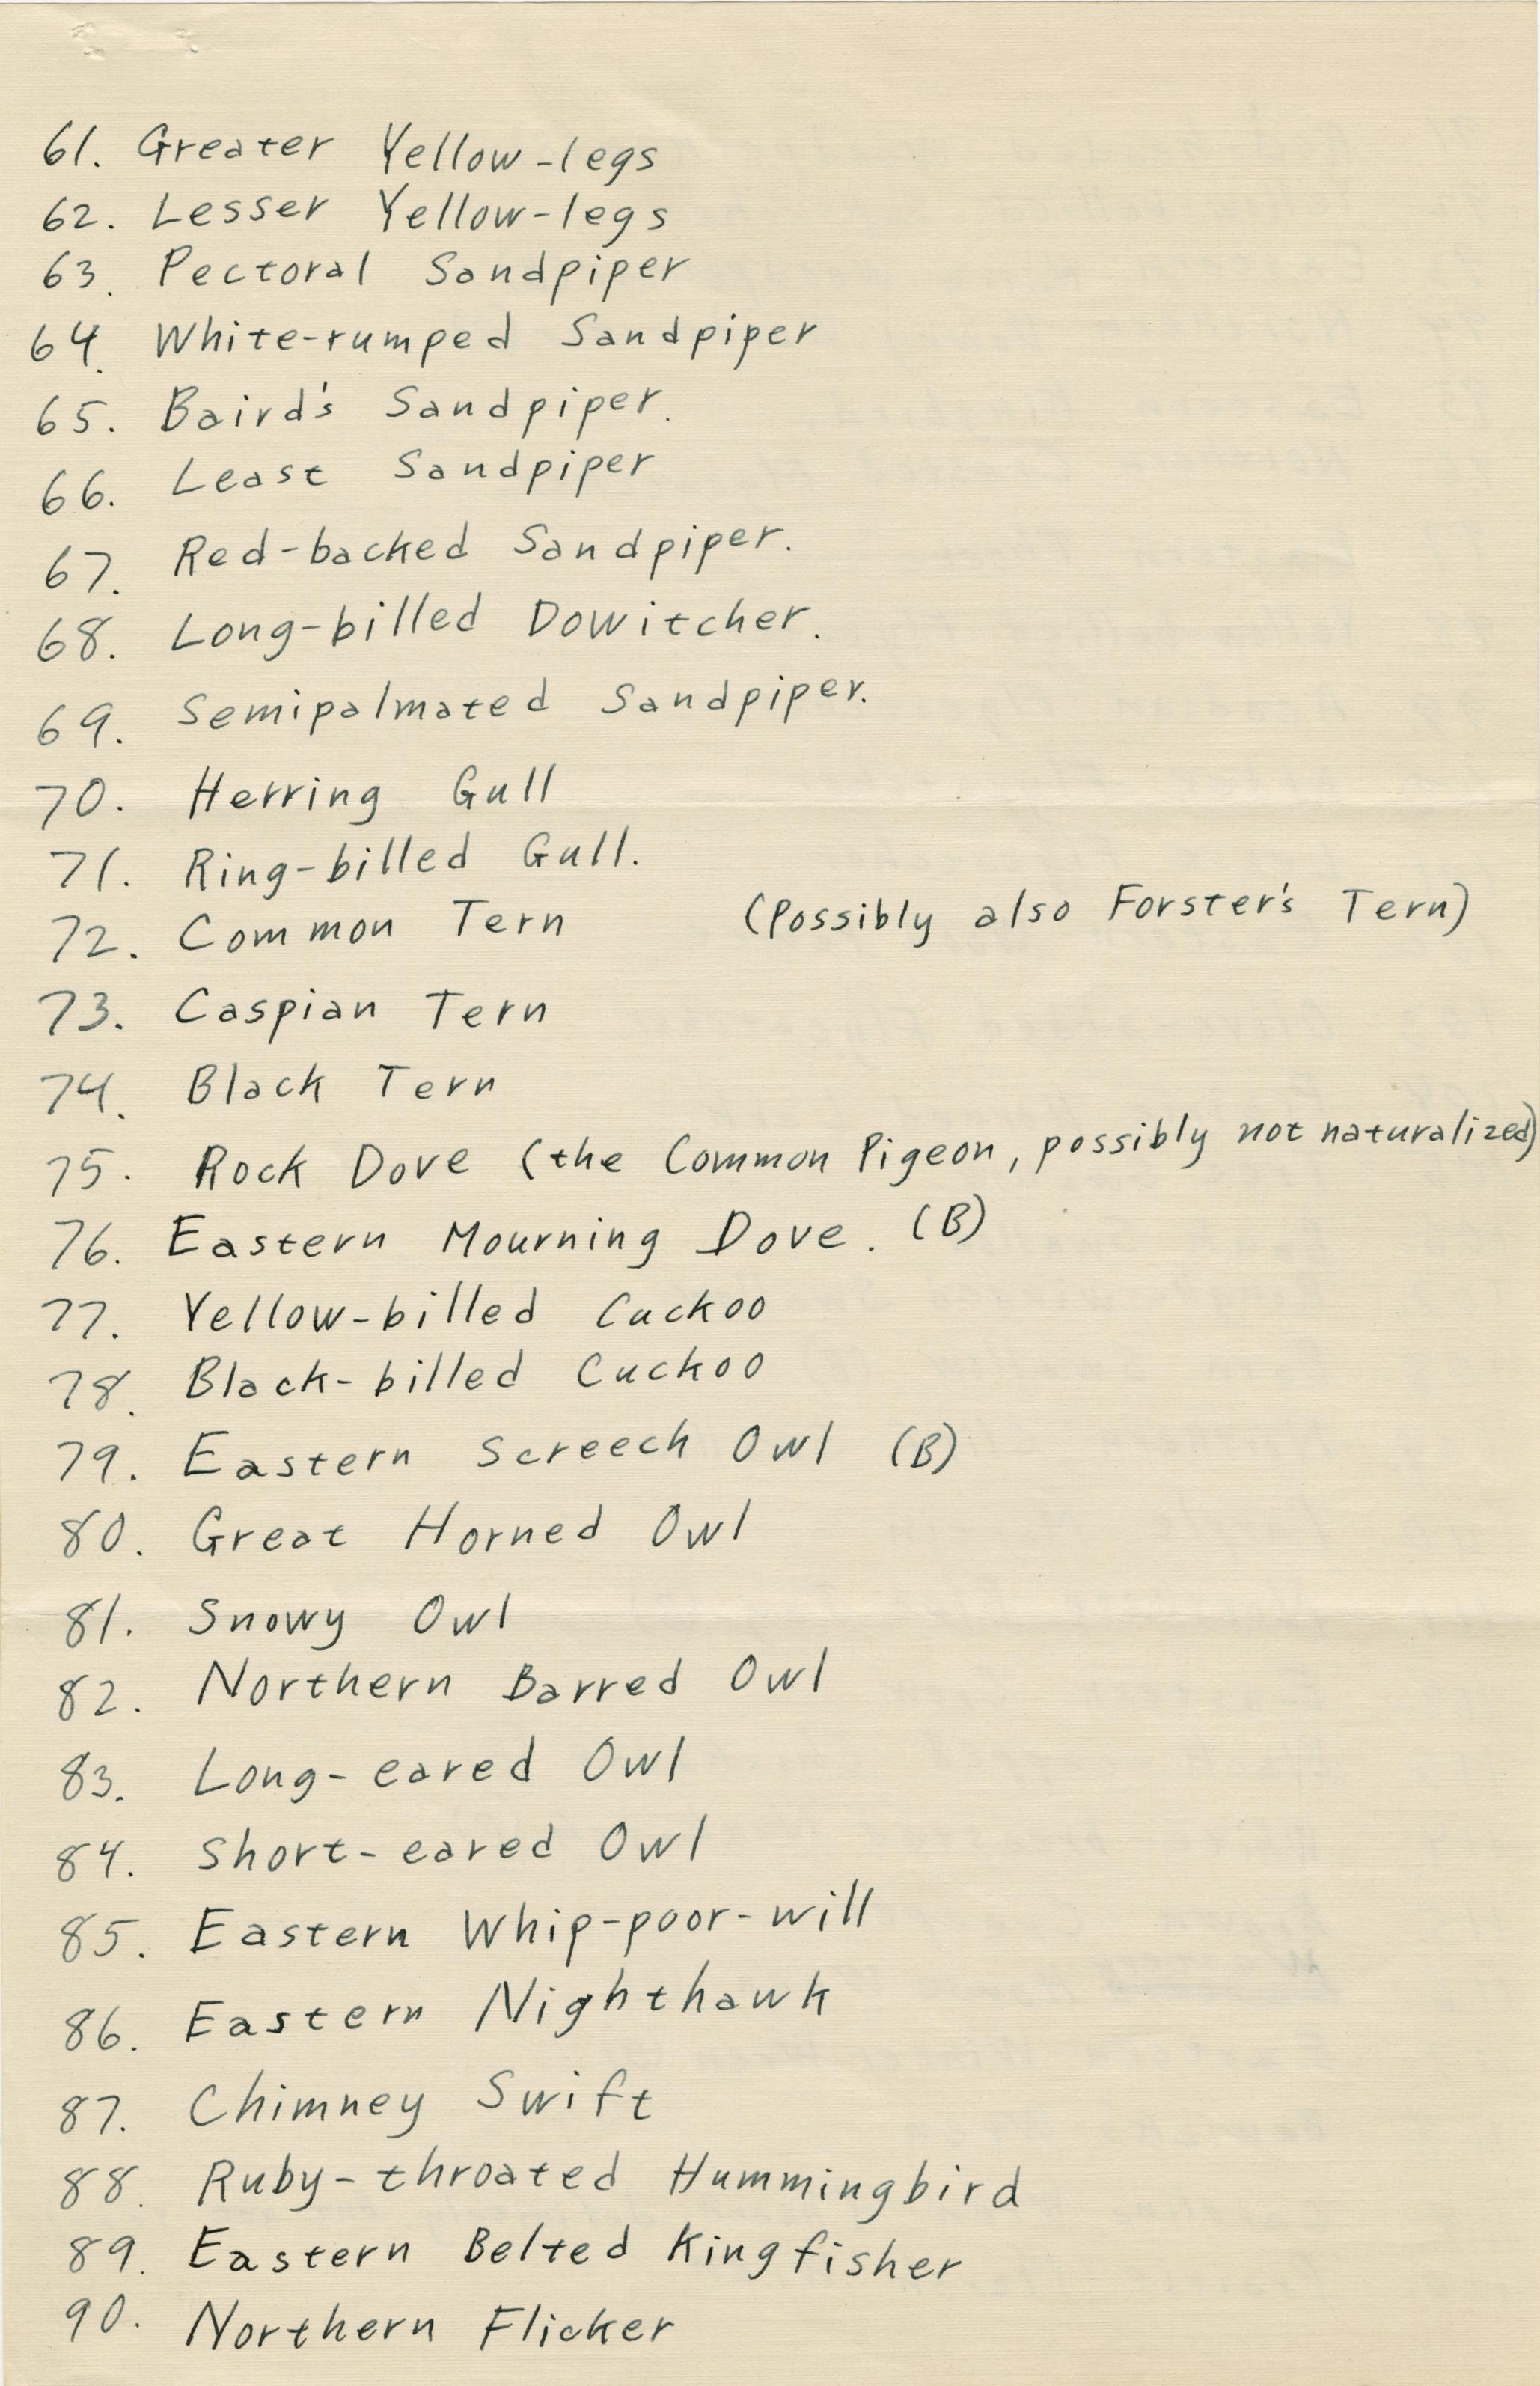 61. Greater Yellow-legs
62. Lesser Yellow-legs
63. Pectoral Sandpiper
64. White-rumped Sandpiper
65. Baird's Sandpiper.
66. Least Sandpiper
67. Red-backed Sandpiper.
68. Long-billed Dowitcher.
69. Semipalmated Sandpiper.
70. Herring Gull
71. Ring-billed Gull.
72. Common Tern (Possibly also Forster's Tern)
73. Caspian Tern
74. Black Tern
75. Rock Dove (the Common Pigeon, possibly not naturalized)
76. Eastern Mourning Dove. (B)
77. Yellow-billed Cuckoo
78. Black-billed Cuckoo
79. Eastern Screech Owl (B)
80. Great Horned Owl
81. Snowy Owl
82. Northern Barred Owl
83. Long-eared Owl
84. Short-eared Owl
85. Eastern Whip-poor-will
86. Eastern Nighthawk
87. Chimney Swift
88. Ruby-throated Hummingbird
89. Eastern Belted Kingfisher
90. Northern Flicker